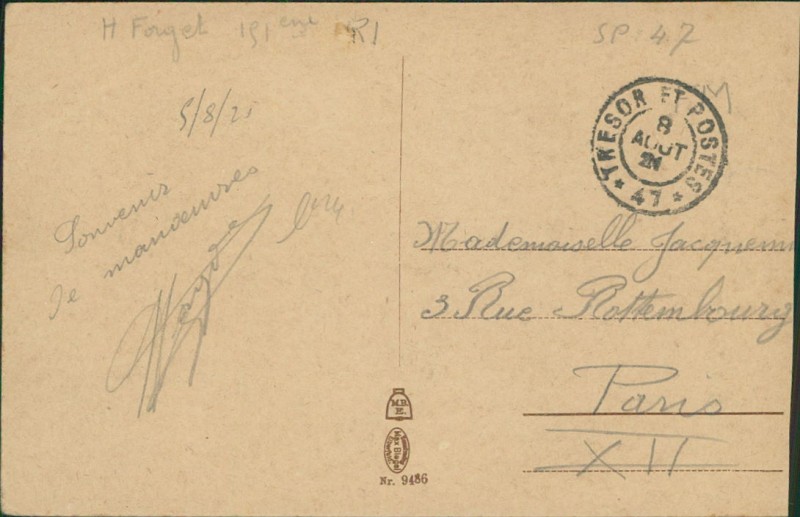 H Forget 151eme RI
SP: 47
5/8/21
TRESOR ET POSTES
8
AOUT
21
* 47 *
Souvenir
de manœuvres
Mademoiselle Jacquemin
3 Rue Rottembourg
Paris
XII
M.B.
E.
Max Biegel
Nr. 9486